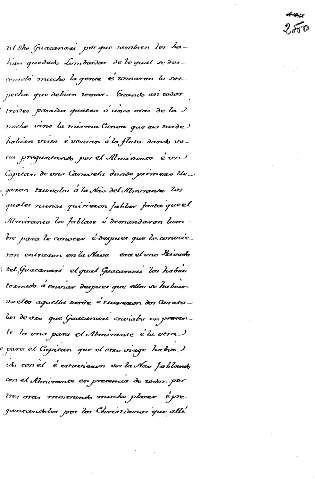 250
del dho Guacanari por que tambien les ha-
bian quedado Lombardas de lo qual se des-
consoló mucho la gente é tomaron la sos-
pecha que debian tener. Estando asi todos
tristes pasadas quatro ó cinco oras de la
noche vino la misma Canoa que esa tarde
habian visto é venian á la flota dando vo-
ces preguntando por el Almirante é un
Capitan de una Caravela donde primero lle-
garon trujolos á la Nao del Almirante los
quales nunca quisieron fablar hasta que el
Almirante los fablase é demandaron lum-
bre para lo conocer é despues que lo conocie-
ron entraron en la Nave era el uno Primo
del Guacanari el qual Guacanari los habia
tornado á enviar despues que ellos se habian
tornado aquella tarde é traian dos Caratu-
las de oro que Guacanari enviaba en presen-
te la una para el Almirante é la otra
para el Capitan que el otro viage habia
ido con él é estuvieron en la Nao fablando
con el Almirante en presencia de todos por
tres oras mostrando mucho placer é pre-
guntandoles por los Christianos que allí